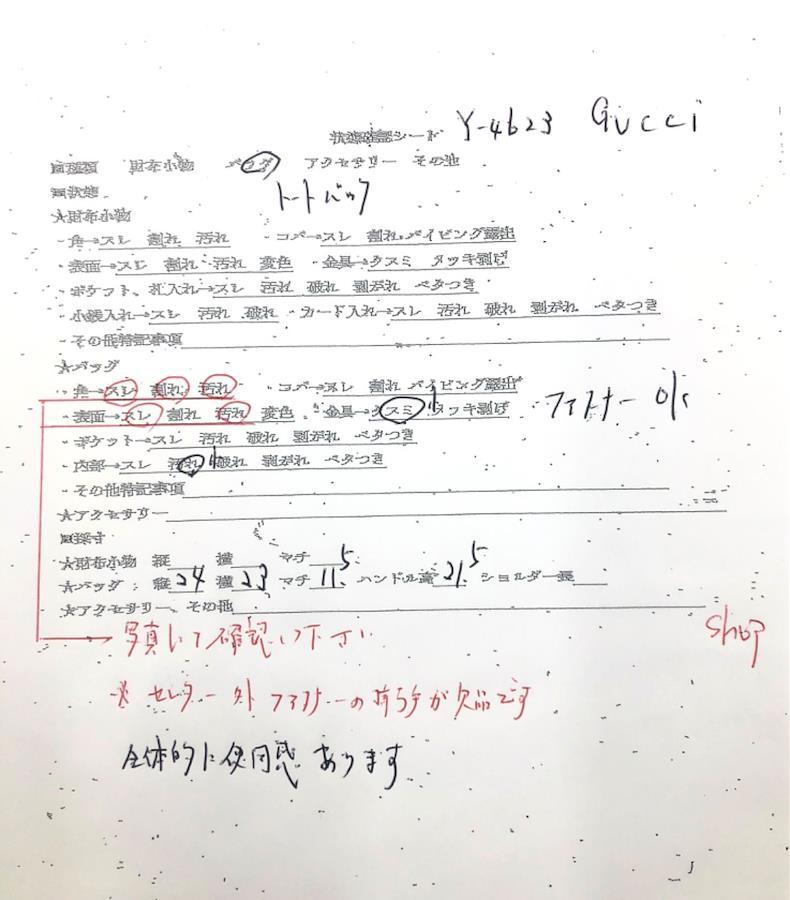 状態確認シート Y-4623 GUCCI
■種類 財布小物 バッグ アクセサリー その他
■状態 トートバック
★財布小物
・角→スレ 割れ 汚れ ・コバ→スレ 割れ パイピング露出
・表面→スレ 割れ 汚れ 変色 ・金具→クスミ メッキ剥げ
・ポケット、札入れ→スレ 汚れ 破れ 剥がれ ベタつき
・小銭入れ→スレ 汚れ 破れ ・カード入れ→スレ 汚れ 破れ 剥がれ ベタつき
・その他特記事項
★バッグ
・角→スレ 割れ 汚れ ・コバ→スレ 割れ パイピング露出
・表面→スレ 割れ 汚れ 変色 ・金具→クスミ メッキ剥げ ファスナー OK
・ポケット→スレ 汚れ 破れ 剥がれ ベタつき
・内部→スレ 汚れ 破れ 剥がれ ベタつき
・その他特記事項
★アクセサリー
■採寸
★財布小物 縦 横 マチ
★バッグ 縦24 横23 マチ11.5 ハンドル高21.5 ショルダー長
★アクセサリー、その他
写真にて確認下さい shop
※ センター外ファスナーの持ち手が欠品です
全体的に使用感あります